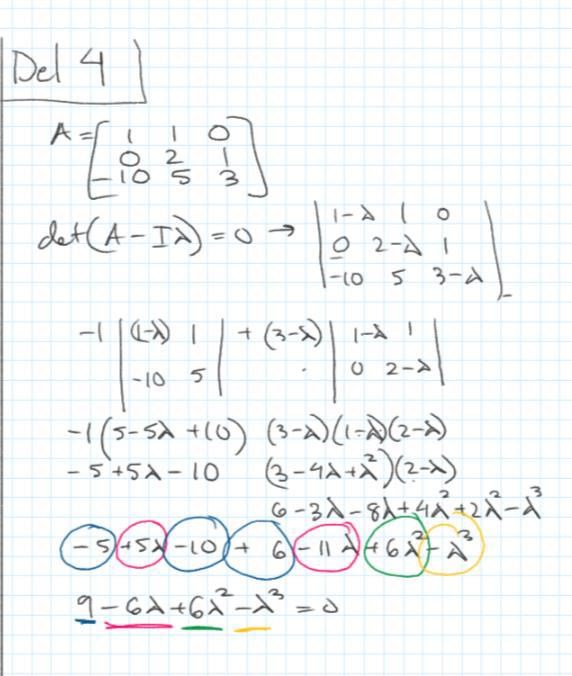 Del 4
A = [ 1 1 0
0 2 1
-10 5 3 ]
det(A - Iλ) = 0 → | 1-λ 1 0
0 2-λ 1
-10 5 3-λ |
-1 | (1-λ) 1 | + (3-λ) | 1-λ 1 |
| -10 5 | · | 0 2-λ |
-1(5-5λ+10) (3-λ)(1-λ)(2-λ)
-5+5λ-10 (3-4λ+λ²)(2-λ)
6-3λ-8λ+4λ²+2λ²-λ³
-5 +5λ -10 + 6 -11λ +6λ² -λ³
9-6λ+6λ²-λ³ = 0